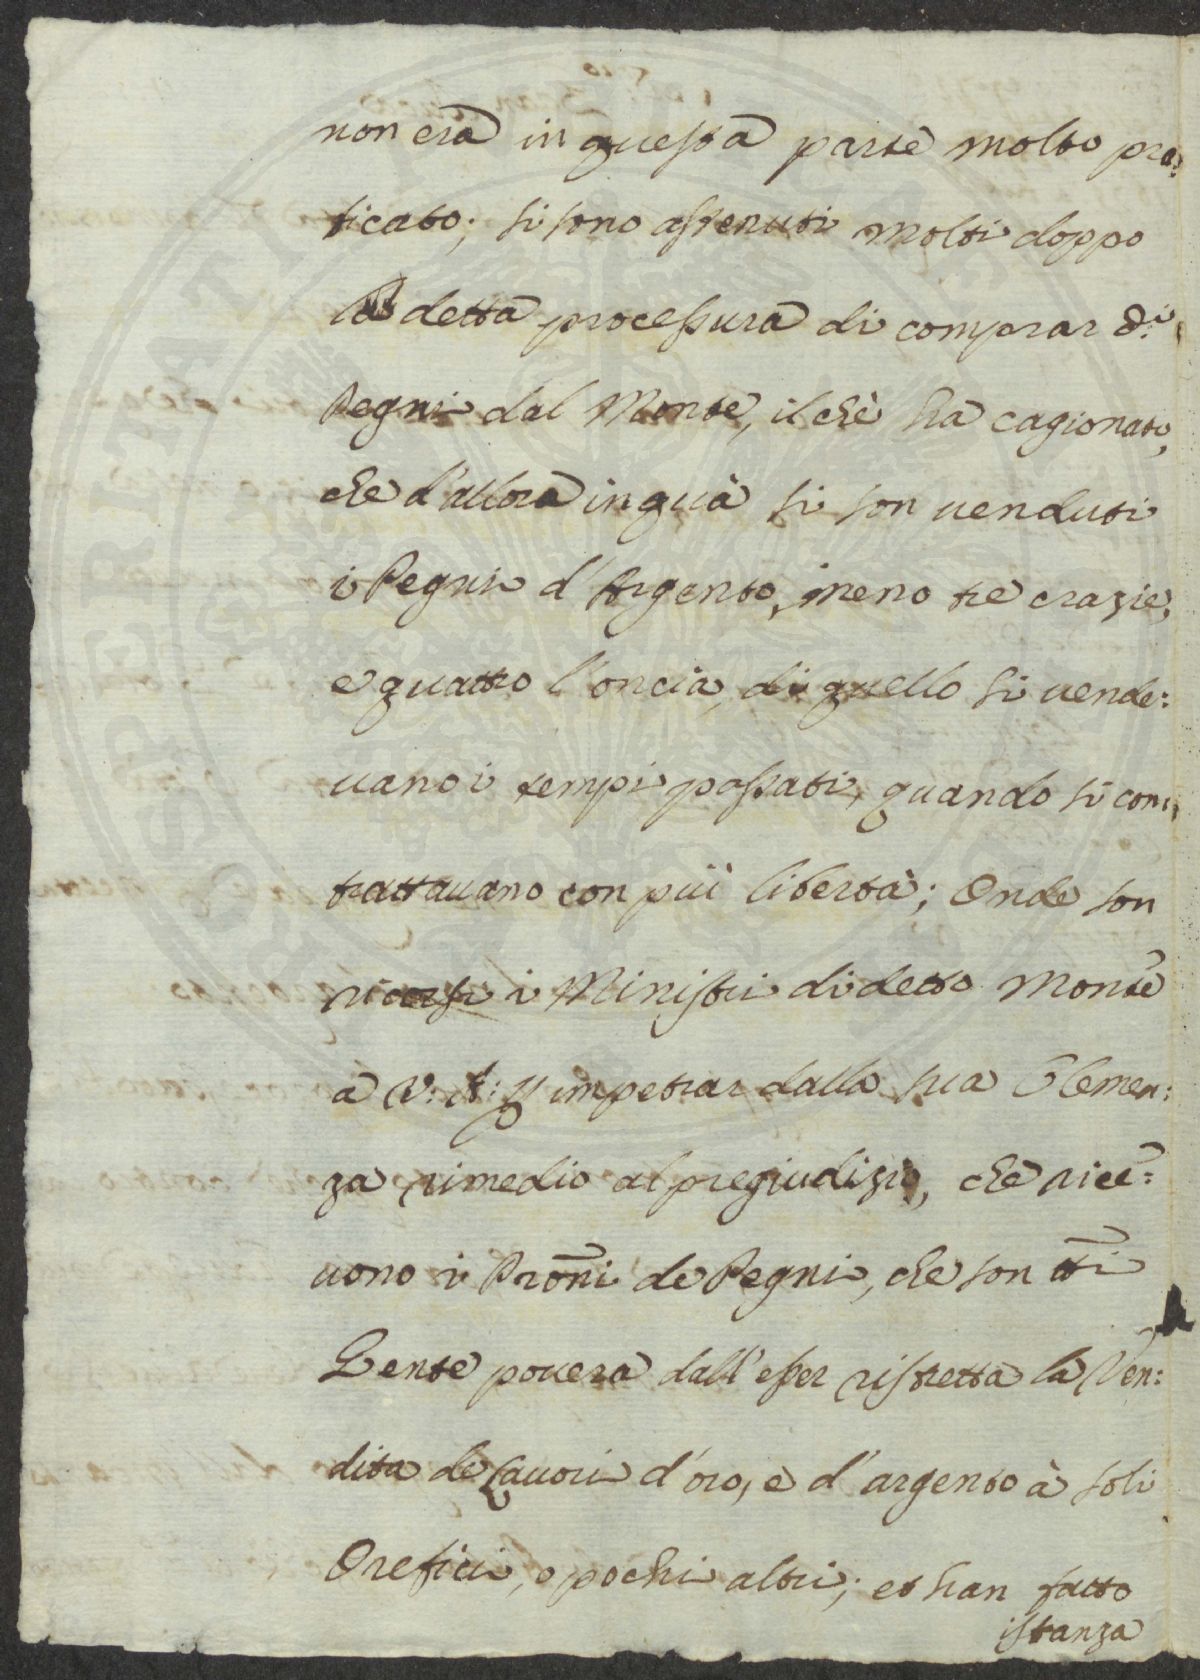 non era in questa parte molto pra:
ticato; si sono astenuti molti doppo
la detta processura di comprar d.i
Pegni dal Monte, il chè ha cagionato,
che d'allora in quà si son venduti
i Pegni d'Argento, meno tre crazie,
e quattro l'oncia, di quello si vende:
vano i tempi passati, quando si con,
trattavano con più libertà; Onde son
ricorsi i Ministri di detto Monte
a V: A: p impetrar dalla sua Clemen:
za rimedio al pregiudizio, che rice:
vono i Proñi de Pegni, che son tti
Gente povera dall'esser ristretta la Ven:
dita de Lavori d'oro, e d'argento à soli
Orefici, o pochi altri; et han fatto
istanza